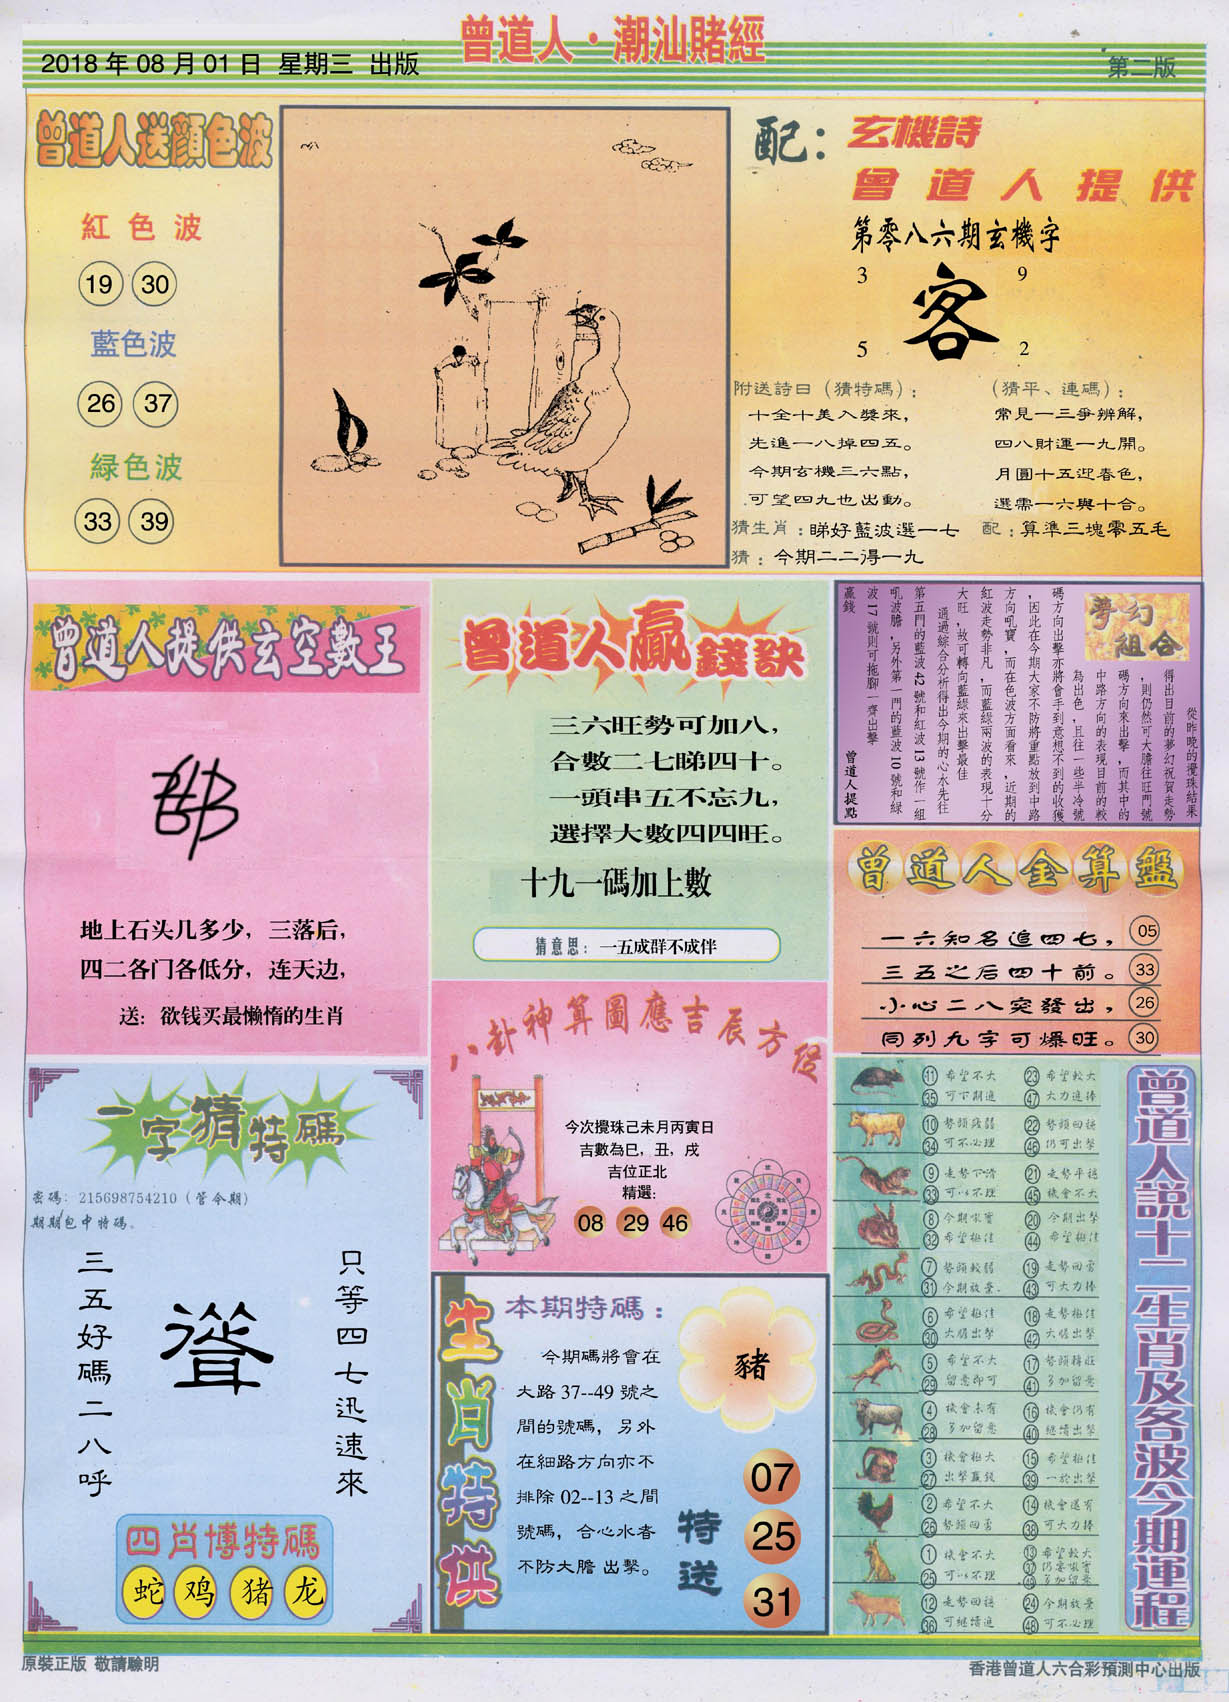 曾道人·潮汕賭經
2018 年 08 月 01 日 星期三 出版
第二版
曾道人送顏色波
紅色波
19 30
藍色波
26 37
緑色波
33 39
配：玄機詩
曾道人提供
第零八六期玄機字
3 9
客
5 2
附送詩日（猜特碼）：
十全十美入獎來，
先進一八掉四五。
今期玄機三六點，
可望四九也出動。
（猜平、連碼）：
常見一三爭辨解，
四八財運一九開。
月圓十五迎春色，
選需一六與十合。
猜生肖：睇好藍波選一七
配：算準三塊零五毛
猜：今期二二得一九
曾道人提供玄空數王
地上石头几多少，三落后，
四二各门各低分，连天边，
送：欲钱买最懒惰的生肖
曾道人贏錢訣
三六旺勢可加八，
合數二七睇四十。
一頭串五不忘九，
選擇大數四四旺。
十九一碼加上數
猜意思：一五成群不成伴
夢幻組合
從昨晚的攪珠結果
得出目前的夢幻祝賀走勢
，則仍然可大膽往旺門號
碼方向來出擊，而其中的
中路方向的表現目前的較
為出色，且往一些半冷號
碼方向出擊亦將會手到意想不到的收獲
，因此在今期大家不防將重點放到中路
方向吼寶，而在色波方面看來，近期的
紅波走勢非凡，而藍綠兩波的表現十分
大旺，故可轉向藍綠來出擊最佳
通過綜合分析得出今期的心水先往
第五門的藍波 42 號和紅波 13 號作一組
吼波膽，另外第一門的藍波 10 號和綠
波 17 號則可拖腳一齊出擊
贏錢
曾道人提點
曾道人金算盤
一六知名追四七， 05
三五之后四十前。 33
小心二八突發出， 26
同列九字可爆旺。 30
八卦神算圖應吉辰方位
今次攪珠己未月丙寅日
吉數為巳，丑，戌
吉位正北
精選：
08 29 46
一字猜特碼
密碼：215698754210（管令期）
期期包中特碼。
只等四七迅速來
三五好碼二八呼
四肖博特碼
蛇 鸡 猪 龙
生肖特供
本期特碼：
今期碼將會在
大路 37--49 號之
間的號碼，另外
在細路方向亦不
排除 02--13 之間
號碼，合心水者
不防大膽 出擊。
豬
特送
07
25
31
曾道人說十二生肖及各波今期運程
11 希望不大 23 希望較大
35 可下期進 47 大力進捧
10 勢頭殘弱 22 勢頭回穩
34 可不必理 46 仍可出擊
9 走勢下滑 21 走勢平穩
33 可以不理 45 機會不大
8 今期吼寶 20 今期出擊
32 希望極佳 44 希望極佳
7 勢頭較弱 19 走勢回勇
31 今期放棄 43 可大力捧
6 希望極佳 18 走勢極佳
30 大膽出擊 42 大膽出擊
5 希望不大 17 勢頭轉旺
29 留意即可 41 多加留意
4 機會未有 16 機會仍有
28 多加留意 40 繼續出擊
3 機會極大 15 希望極佳
27 出擊贏錢 39 一於出擊
2 希望不大 14 機會還有
26 勢頭回勇 38 可大力捧
1 機會不大 13 希望較大
25 可以不理 37 仍要吼寶
49 多加留意
12 走勢回穩 24 今期放棄
36 可繼續進 48 可不必理
原裝正版 敬請驗明
香港曾道人六合彩預測中心出版